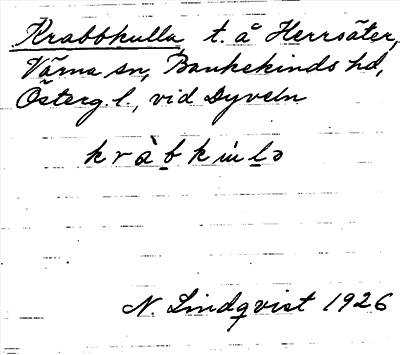 Krabbkulla t. å Herrsäter,
Värna sn, Bankekinds hd,
Österg. l., vid Dyveln
k r à b k ù l ə
N. Lindqvist 1926